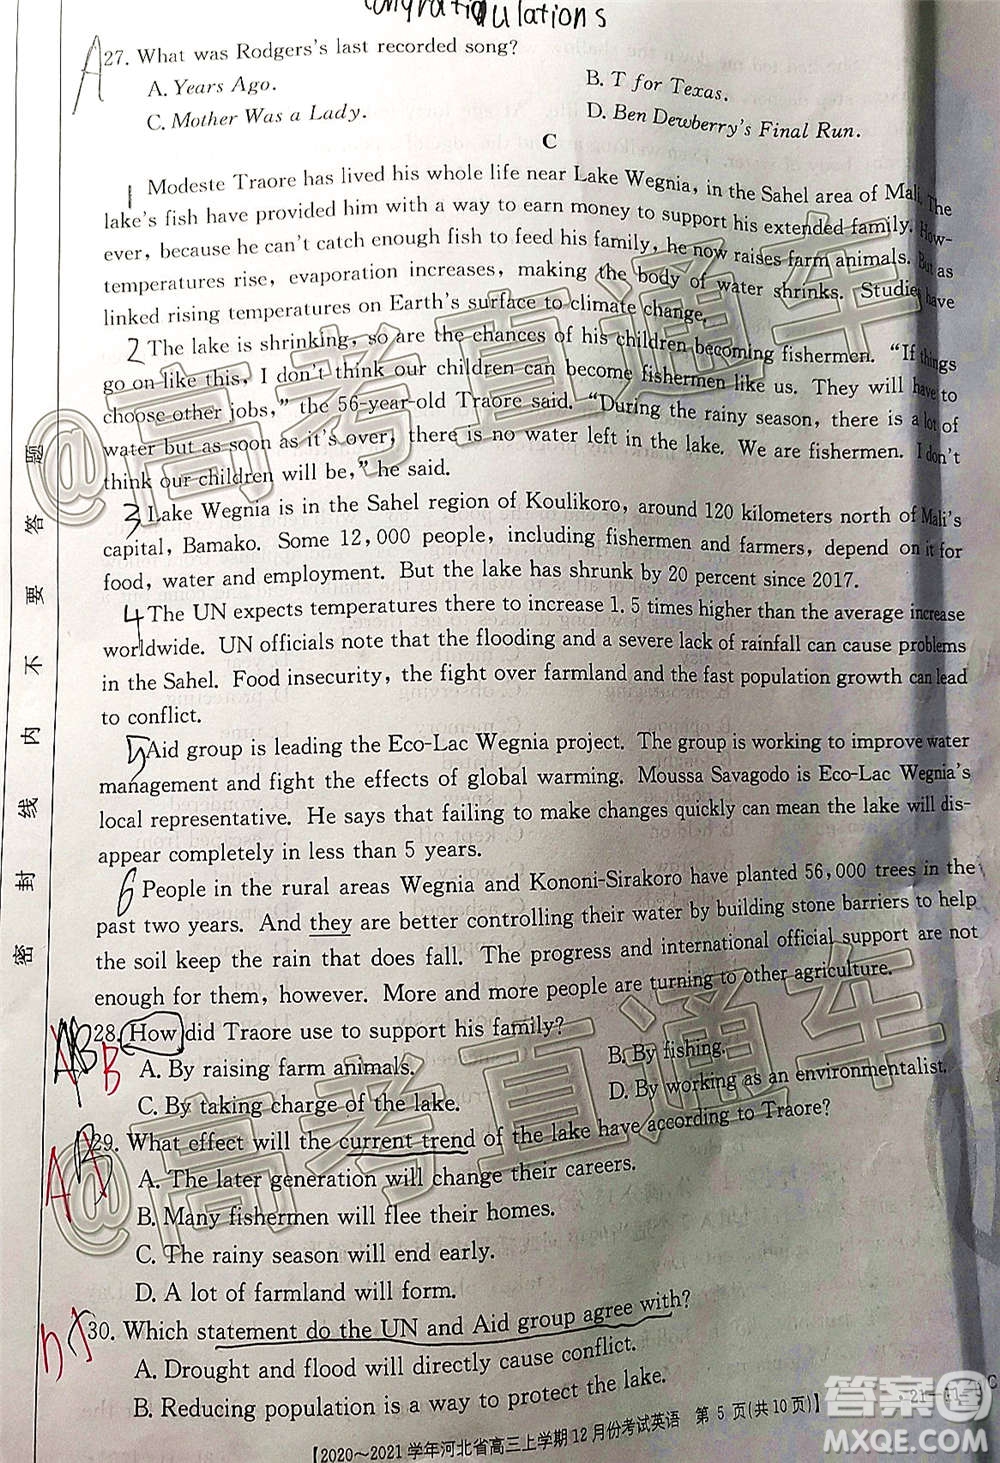 27. What was Rodgers's last recorded song?
A. Years Ago.
B. T for Texas.
C. Mother Was a Lady.
D. Ben Dewberry's Final Run.
C
1 Modeste Traore has lived his whole life near Lake Wegnia, in the Sahel area of Mali. The
lake's fish have provided him with a way to earn money to support his extended family. How-
ever, because he can't catch enough fish to feed his family, he now raises farm animals. But as
temperatures rise, evaporation increases, making the body of water shrinks. Studies have
linked rising temperatures on Earth's surface to climate change.
2 The lake is shrinking, so are the chances of his children becoming fishermen. "If things
go on like this, I don't think our children can become fishermen like us. They will have to
choose other jobs," the 56-year-old Traore said. "During the rainy season, there is a lot of
water but as soon as it's over, there is no water left in the lake. We are fishermen. I don't
think our children will be," he said.
3 Lake Wegnia is in the Sahel region of Koulikoro, around 120 kilometers north of Mali's
capital, Bamako. Some 12,000 people, including fishermen and farmers, depend on it for
food, water and employment. But the lake has shrunk by 20 percent since 2017.
4 The UN expects temperatures there to increase 1.5 times higher than the average increase
worldwide. UN officials note that the flooding and a severe lack of rainfall can cause problems
in the Sahel. Food insecurity, the fight over farmland and the fast population growth can lead
to conflict.
5 Aid group is leading the Eco-Lac Wegnia project. The group is working to improve water
management and fight the effects of global warming. Moussa Savagodo is Eco-Lac Wegnia's
local representative. He says that failing to make changes quickly can mean the lake will dis-
appear completely in less than 5 years.
6 People in the rural areas Wegnia and Kononi-Sirakoro have planted 56,000 trees in the
past two years. And they are better controlling their water by building stone barriers to help
the soil keep the rain that does fall. The progress and international official support are not
enough for them, however. More and more people are turning to other agriculture.
28. How did Traore use to support his family?
A. By raising farm animals.
B. By fishing.
C. By taking charge of the lake.
D. By working as an environmentalist.
29. What effect will the current trend of the lake have according to Traore?
A. The later generation will change their careers.
B. Many fishermen will flee their homes.
C. The rainy season will end early.
D. A lot of farmland will form.
30. Which statement do the UN and Aid group agree with?
A. Drought and flood will directly cause conflict.
B. Reducing population is a way to protect the lake.
【2020~2021学年河北省高三上学期12月份考试英语 第 5 页(共10页)】
密 封 线 内 不 要 答 题
@高考直通车
@高考直通车
答案圈
MXQE.COM